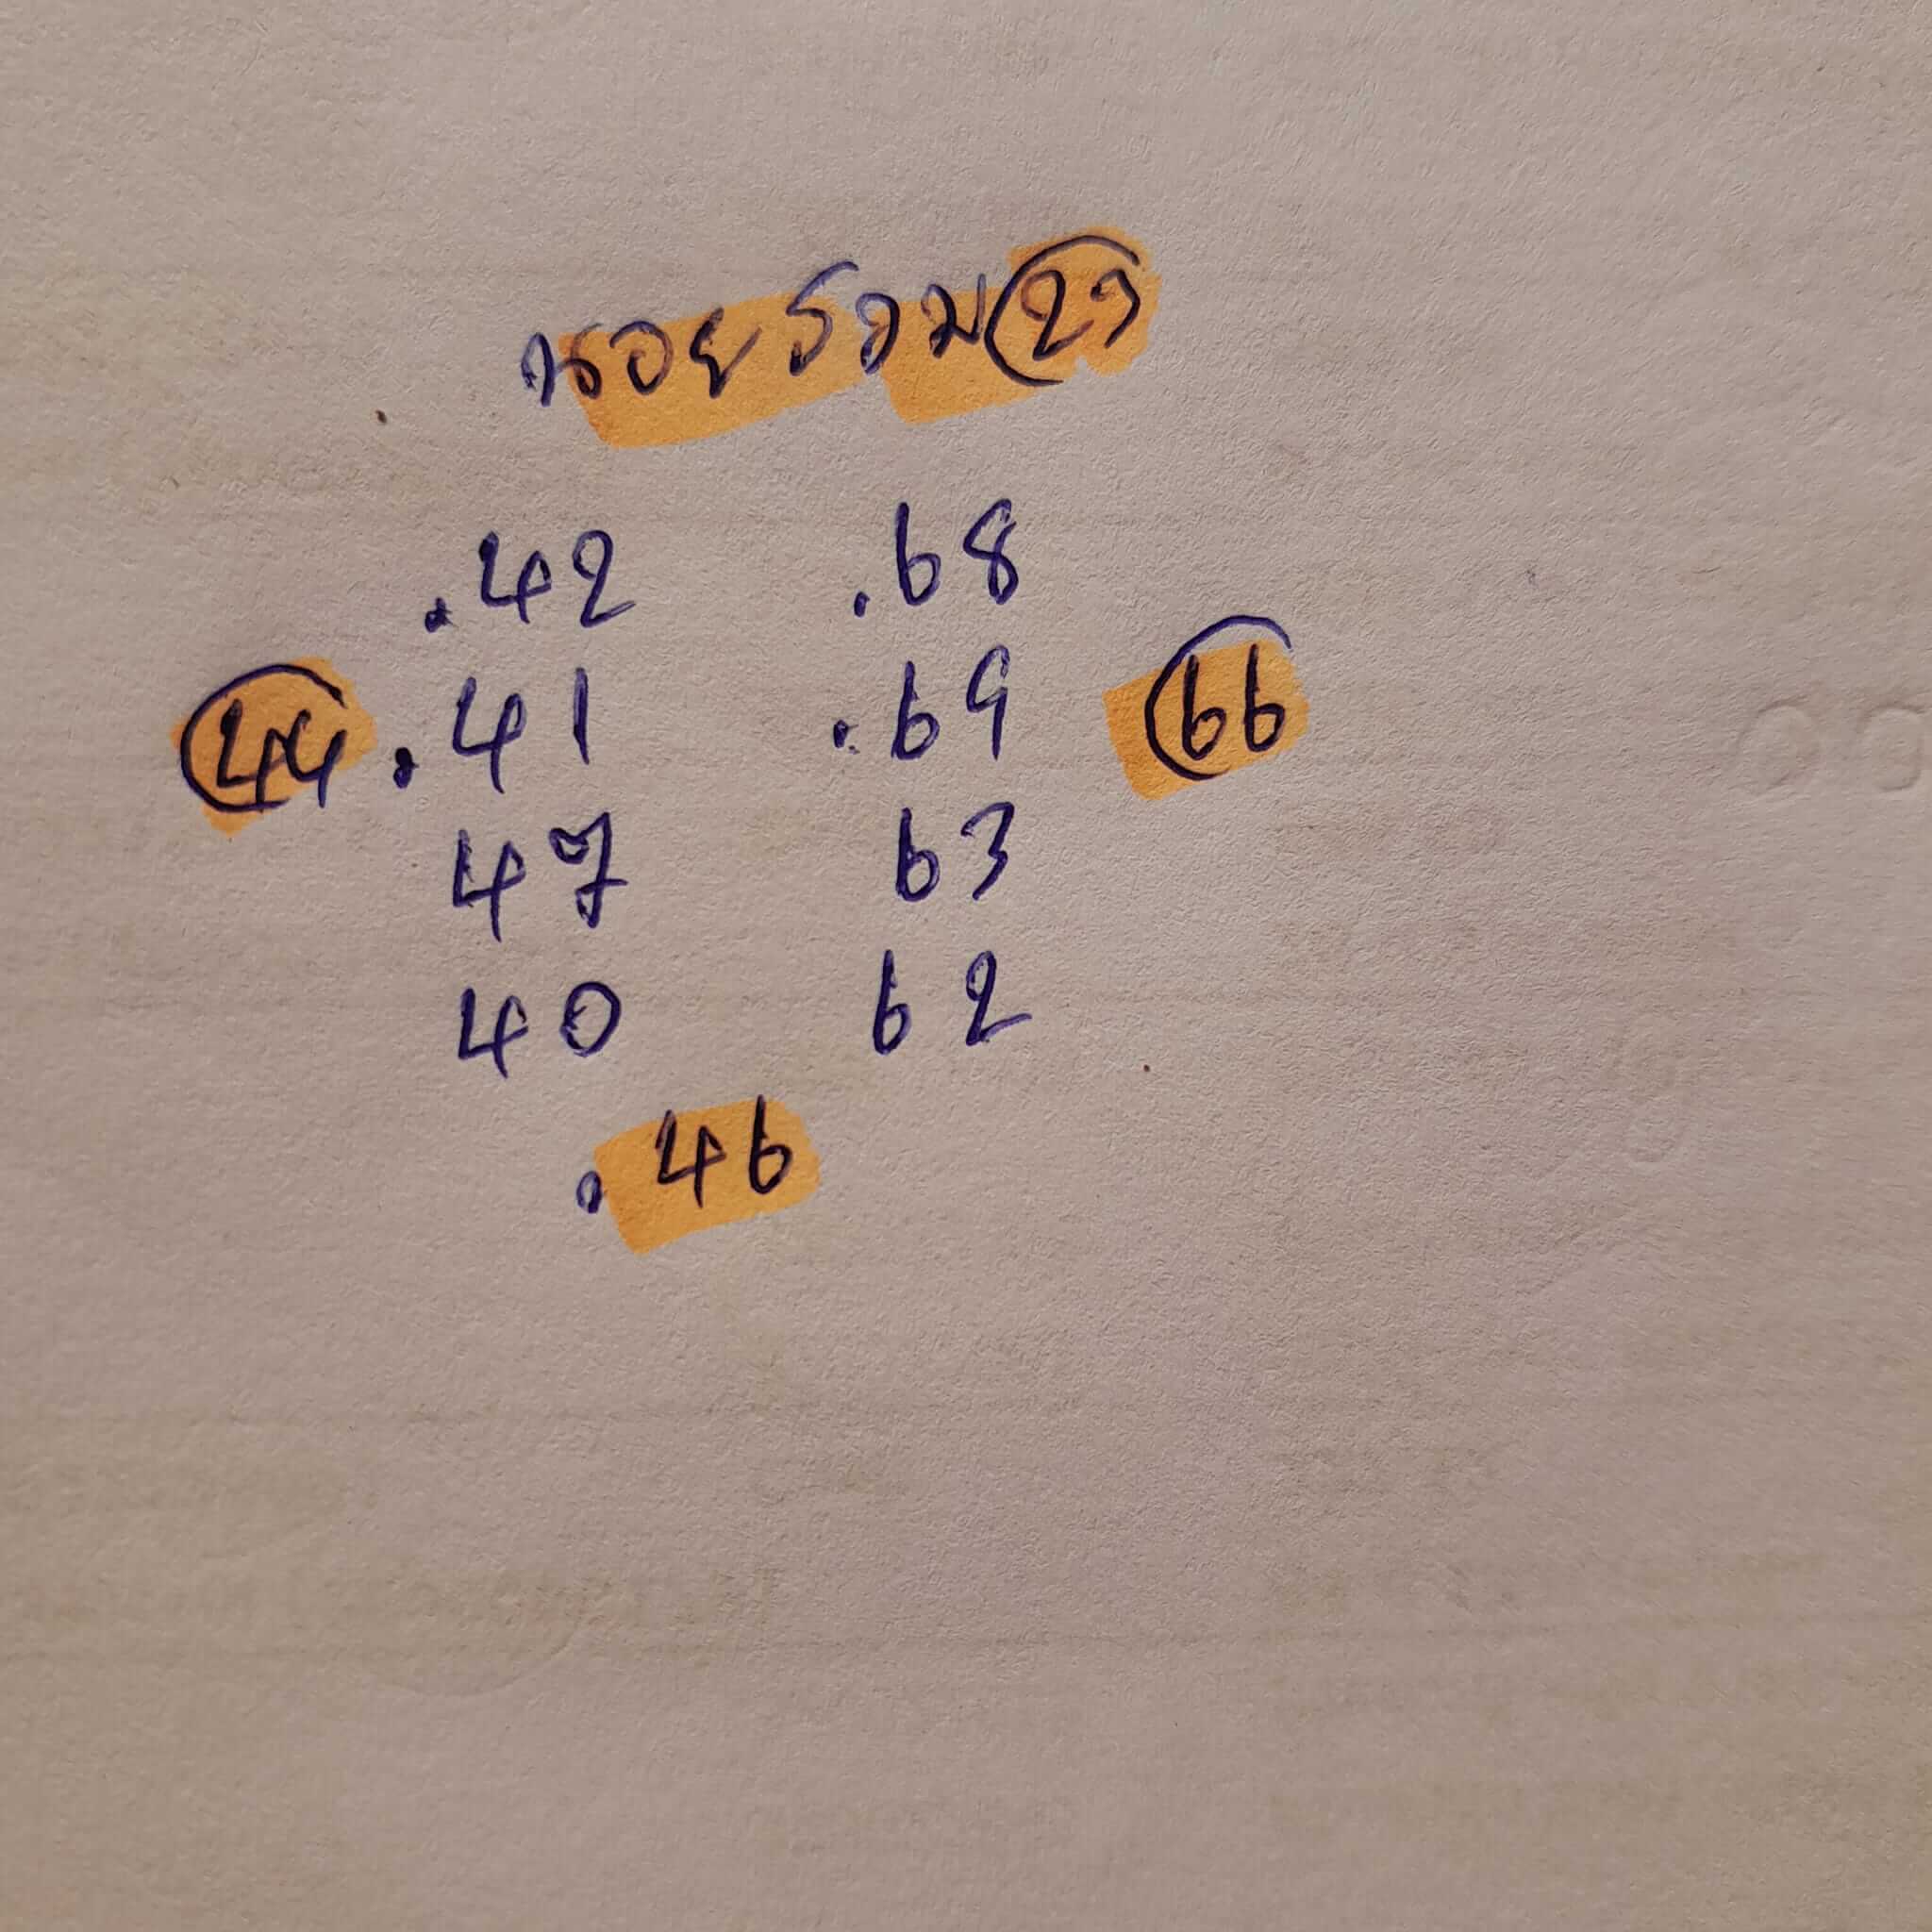 หอยรวม 29
.42 .68
44 .41 .69 66
47 63
40 62
.46